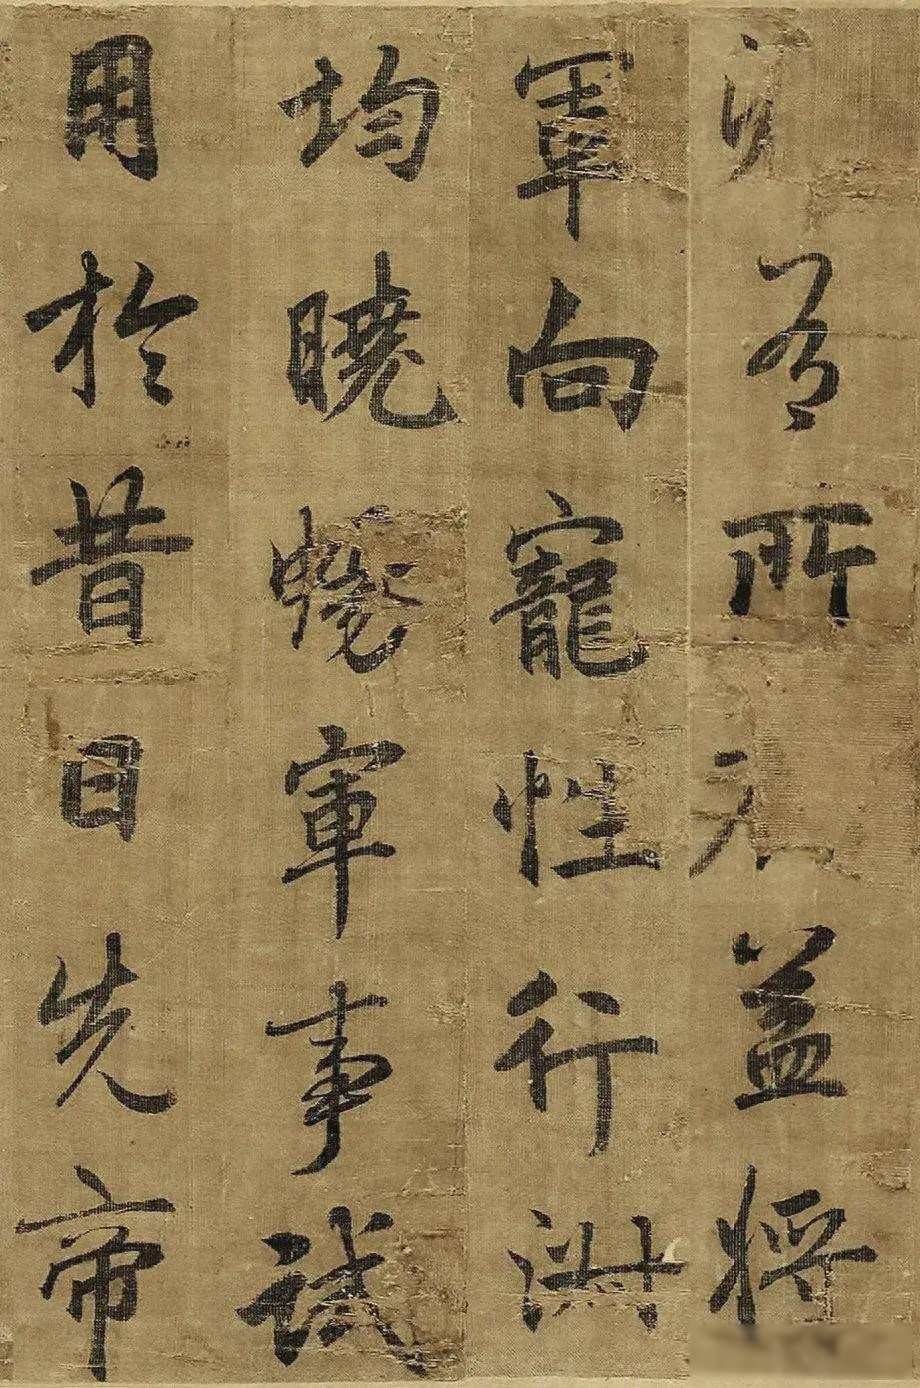 有所益將
軍向寵性行
均曉暢軍事試
用於昔日先帝